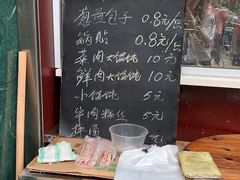 葱煎包子 0.8元/点
锅贴 0.8元/点
菜肉大馄饨 10元
鲜肉大馄饨 10元
小馄饨 5元
牛肉粉丝 5元
元